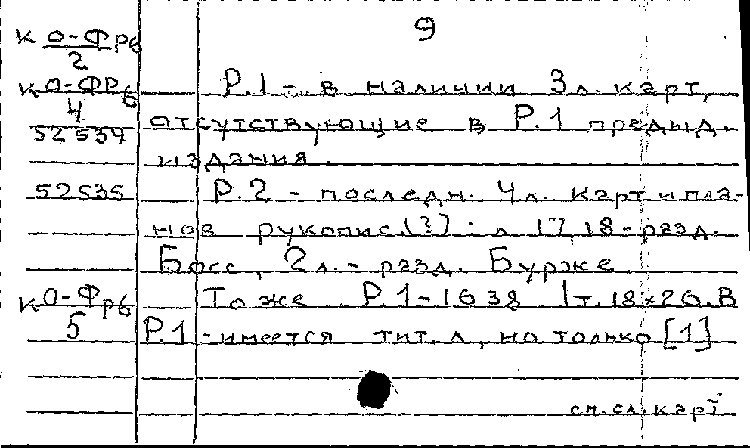 9
К О-Фр6
2
К О-Фр6 Р.1 - в наличии 3 л. карт,
4
52534 отсутствующие в Р.1 предыд.
издания.
52535 Р.2 - последн. 4 л. карт и пла-
нов рукопис.(?): л 17,18 - разд.
Босс, 2 л. - разд. Бурже
К О-Фр6 То же Р.1 - 1638 1 т. 18×26. В
5 Р.1 - имеется тит. л, но только [1]
см. сл. карт